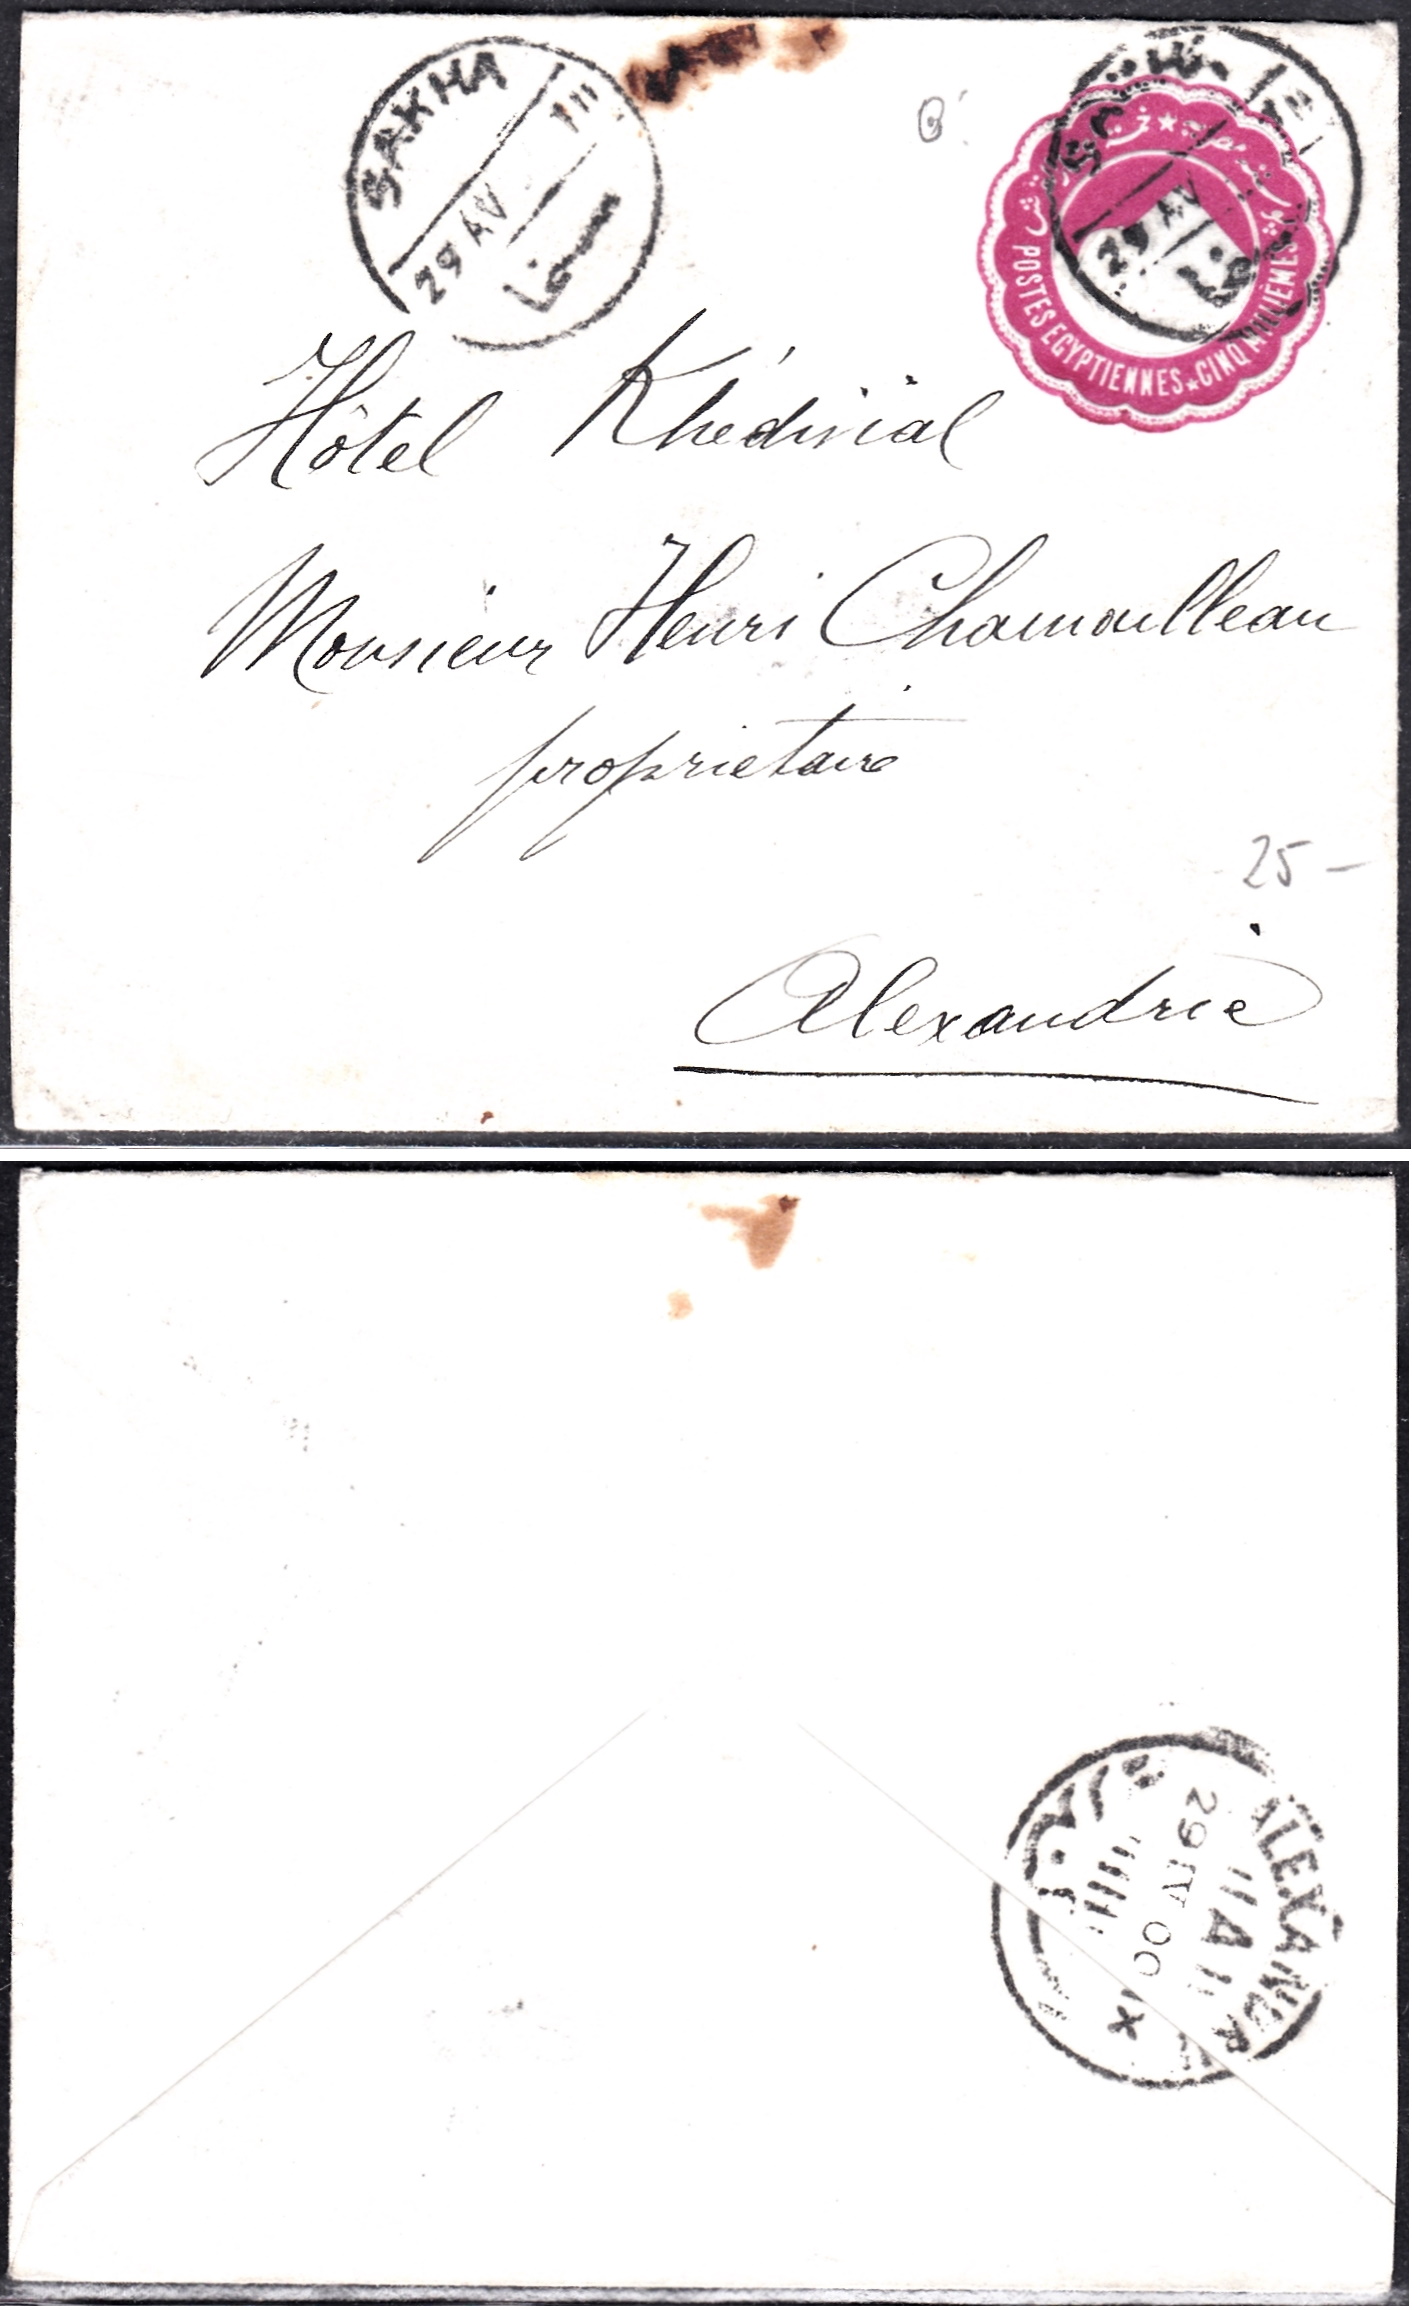 SAKHA
29 AV
سخا
POSTES EGYPTIENNES ★ CINQ MILLIÈMES
29 AV
سخا
Hôtel Khédivial
Monsieur Henri Chamoulleau
proprietaire
25 -
Alexandrie
ALEXANDR
29 IV 00 IX